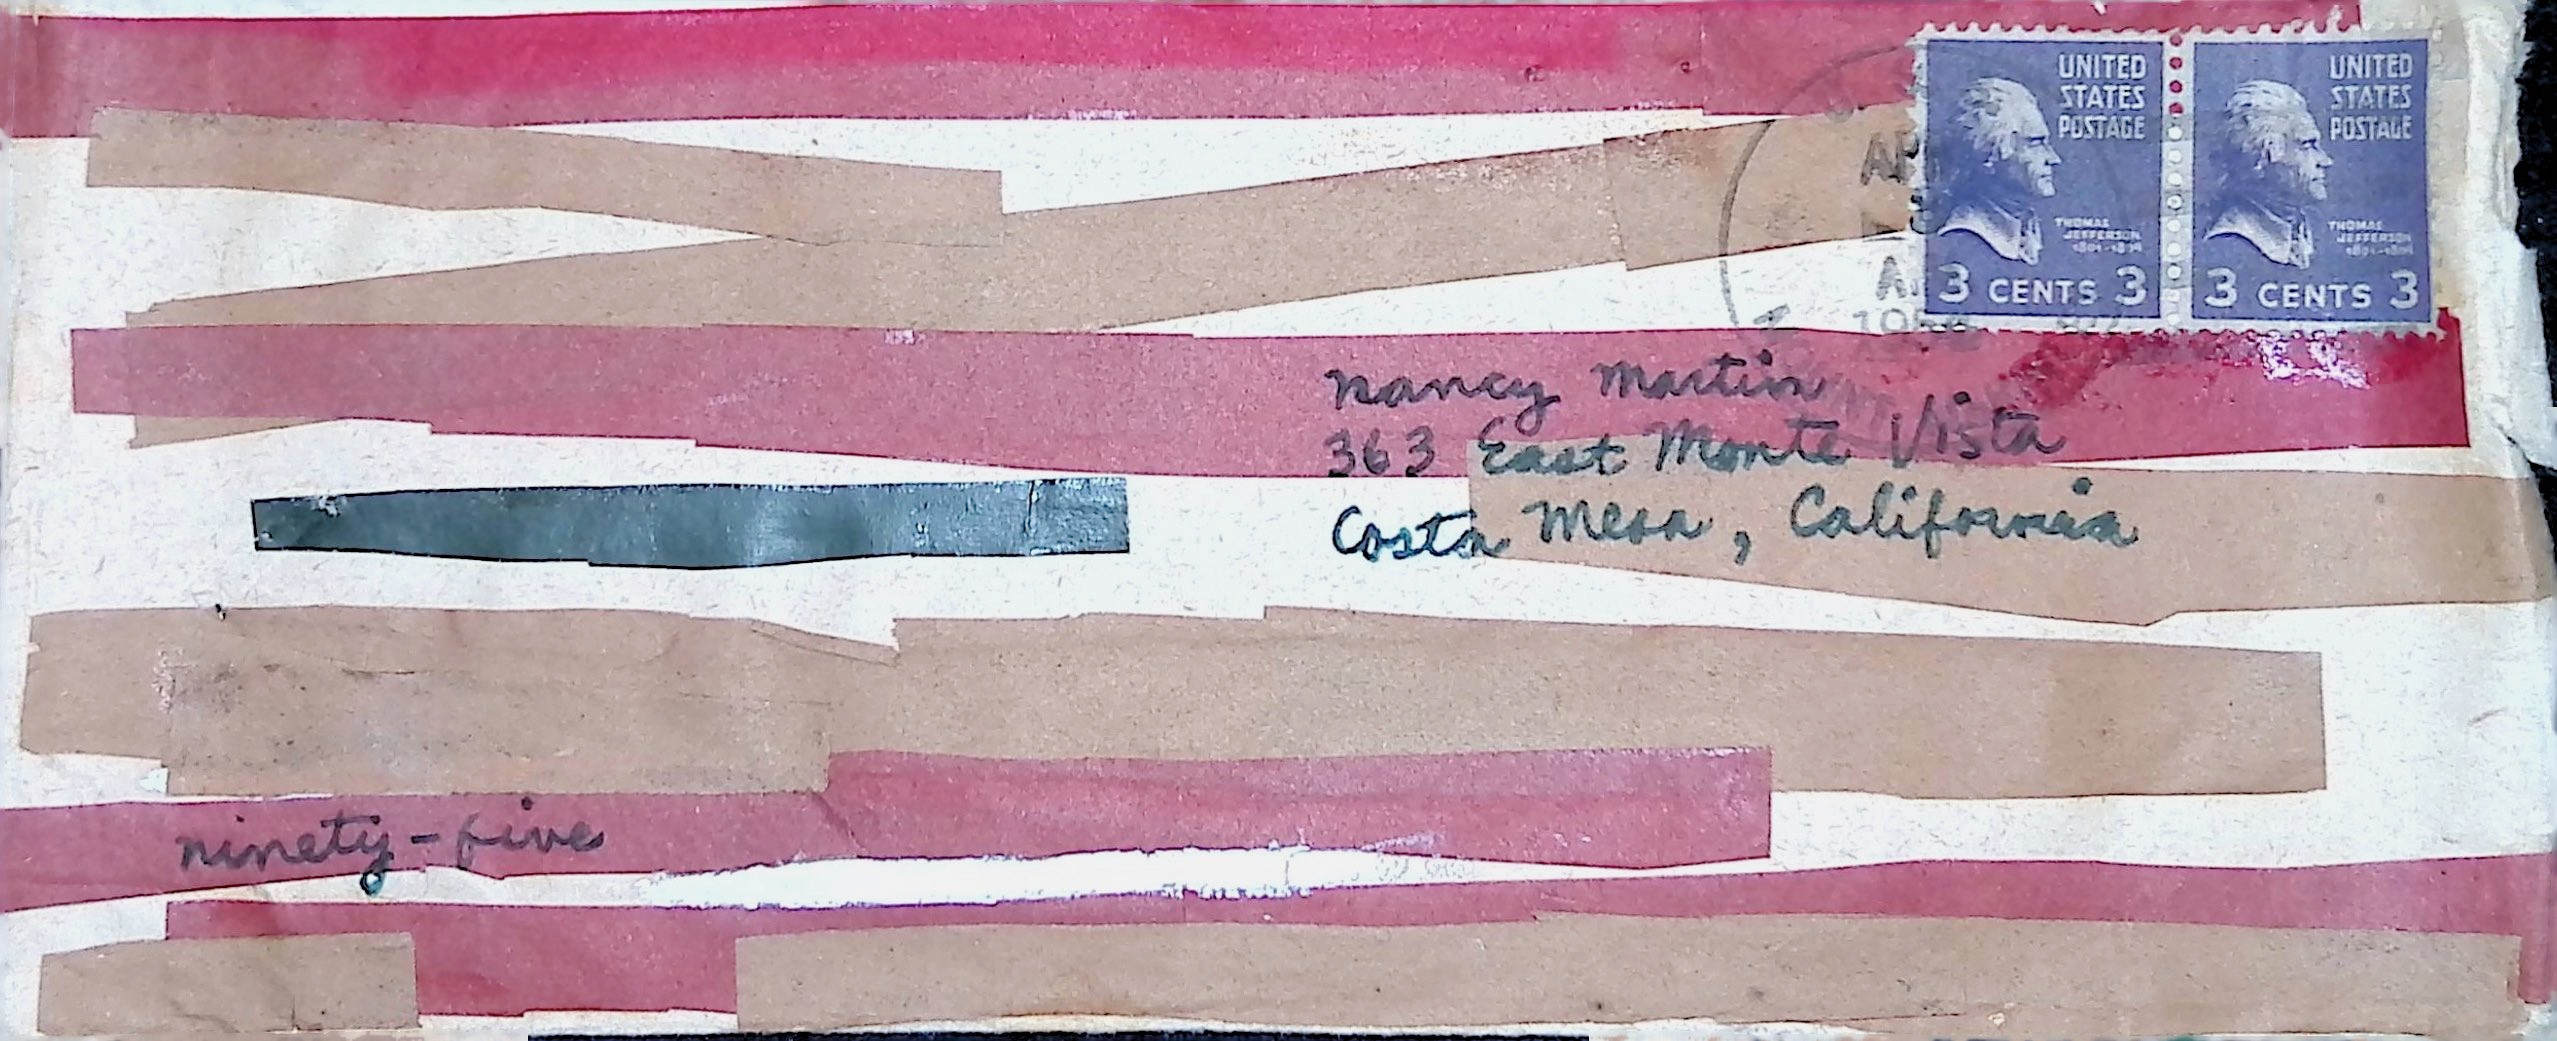 UNITED
STATES
POSTAGE
THOMAS
JEFFERSON
3 CENTS 3
UNITED
STATES
POSTAGE
THOMAS
JEFFERSON
3 CENTS 3
nancy martin
363 East Monte Vista
Costa Mesa, California
ninety-five